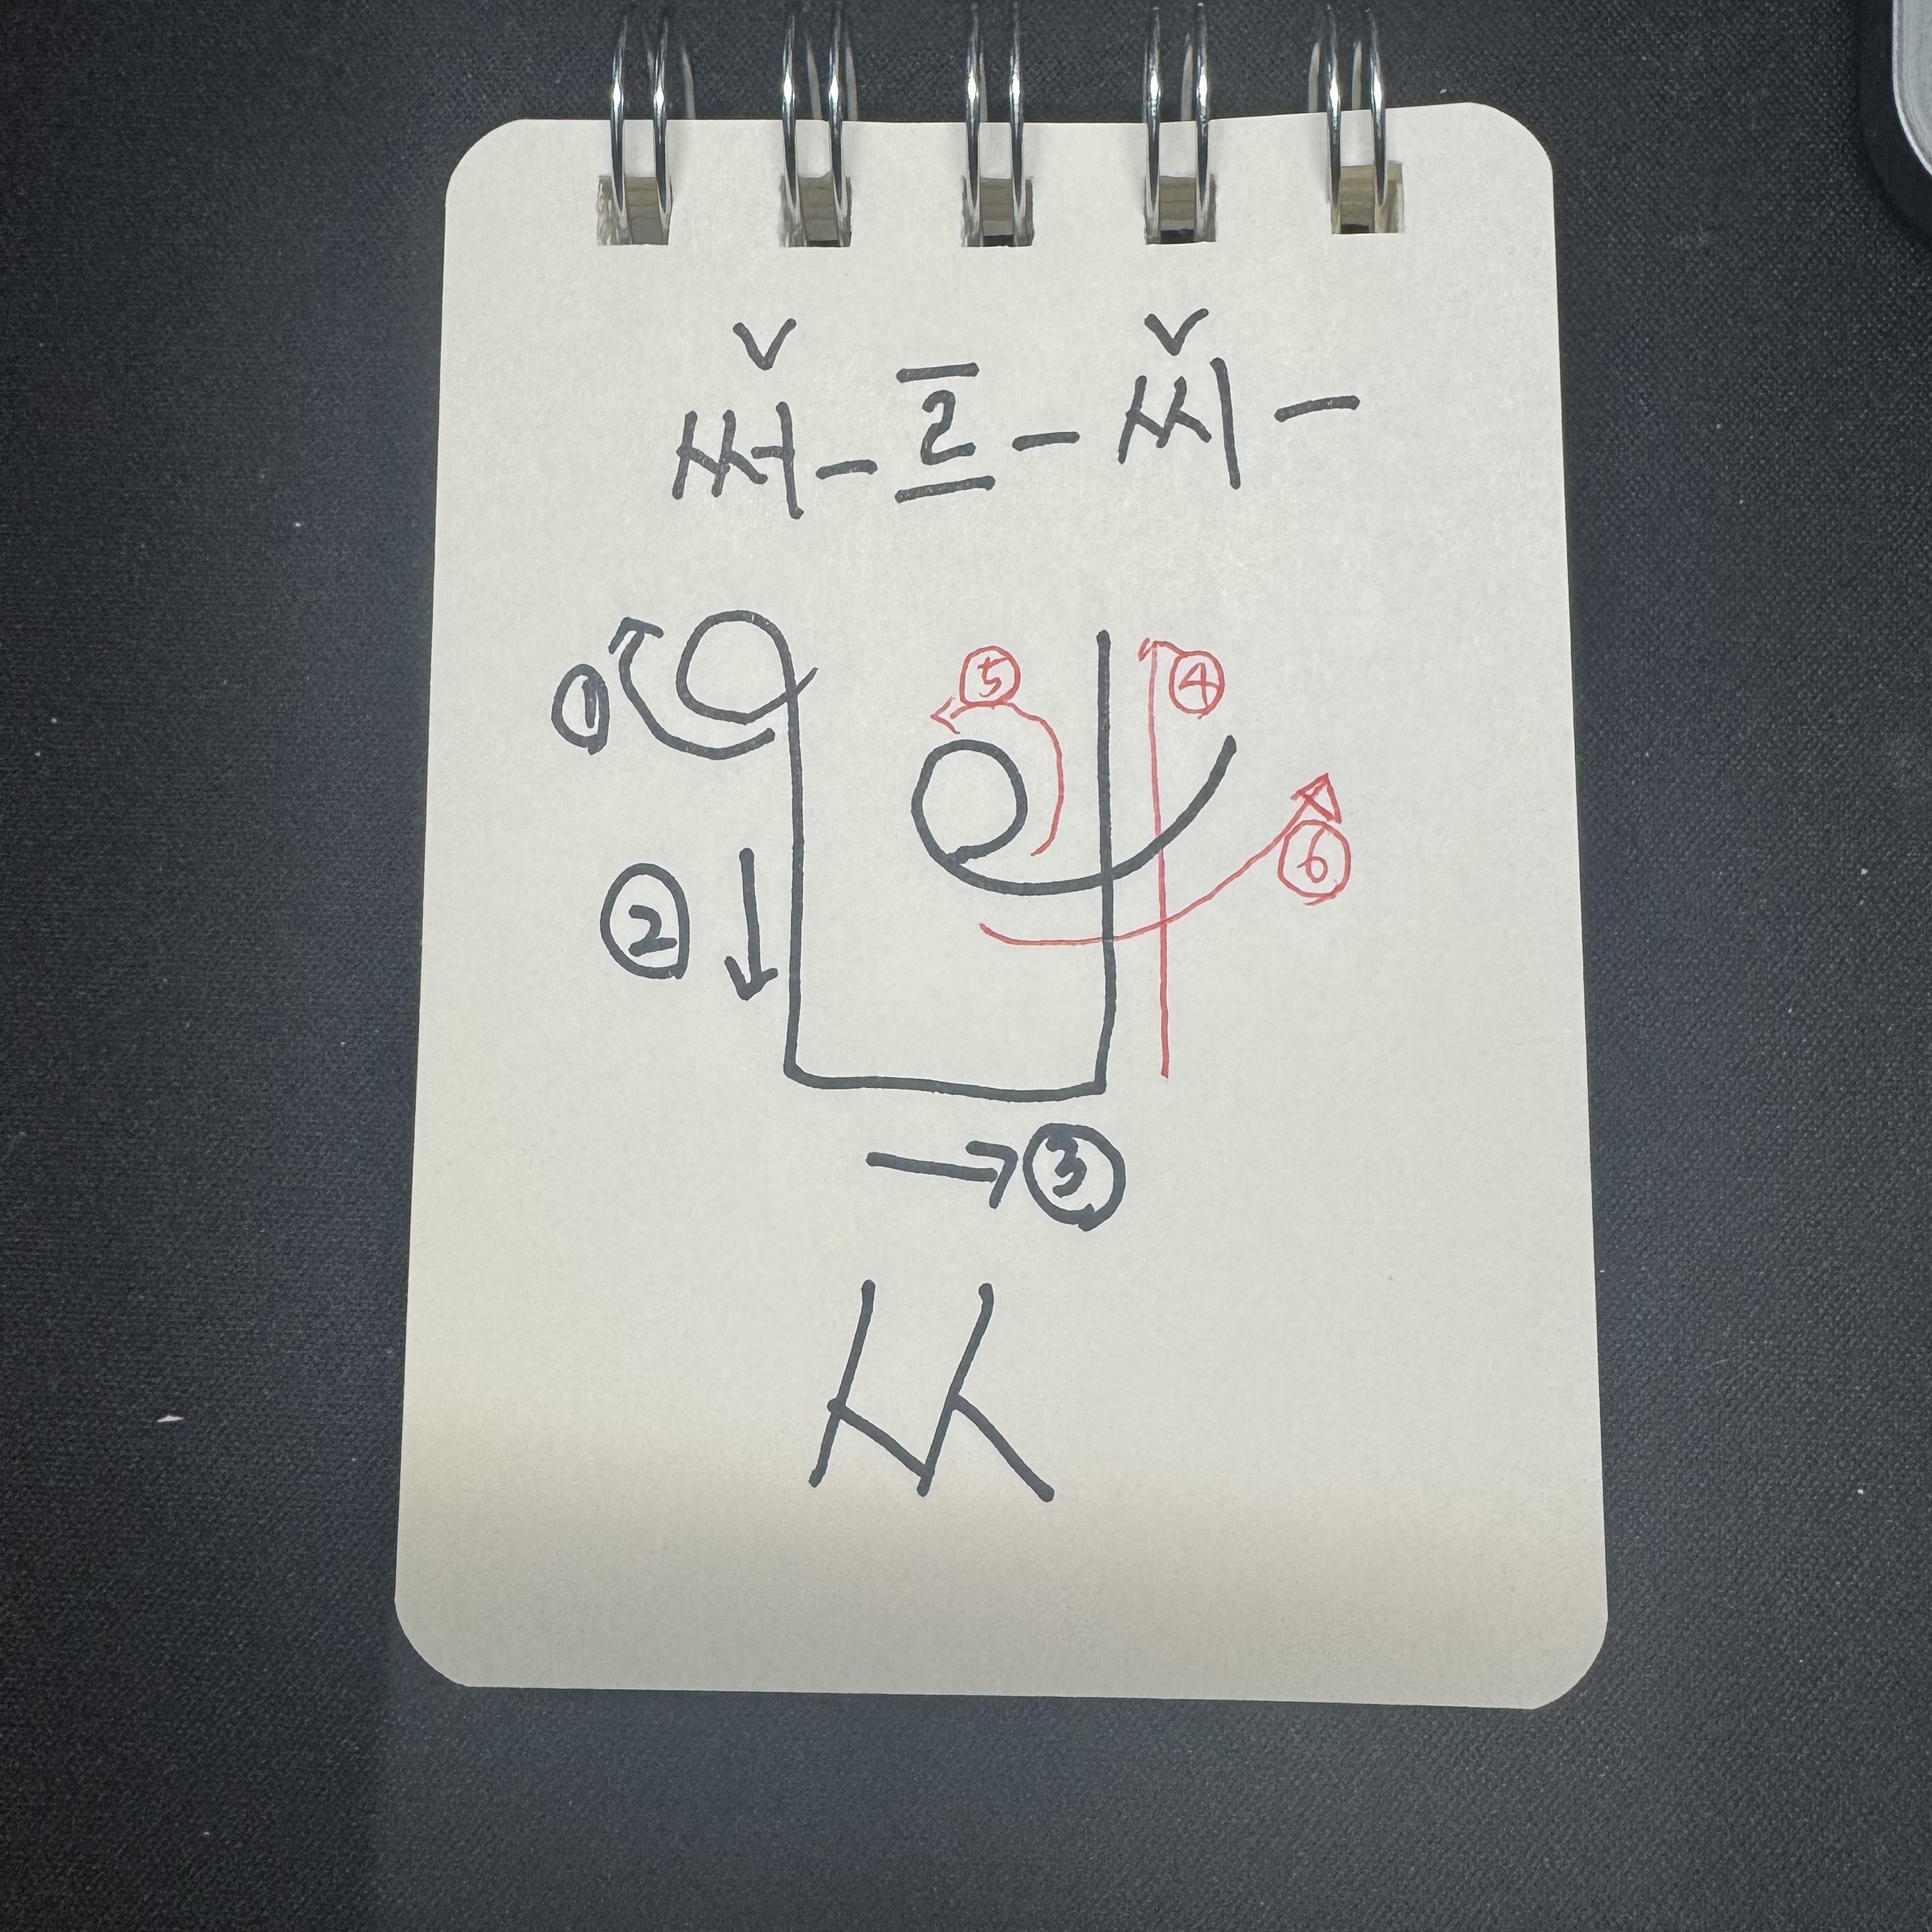 써-르-씨-
①
⑤ ④
②
⑥
③
ㅆ